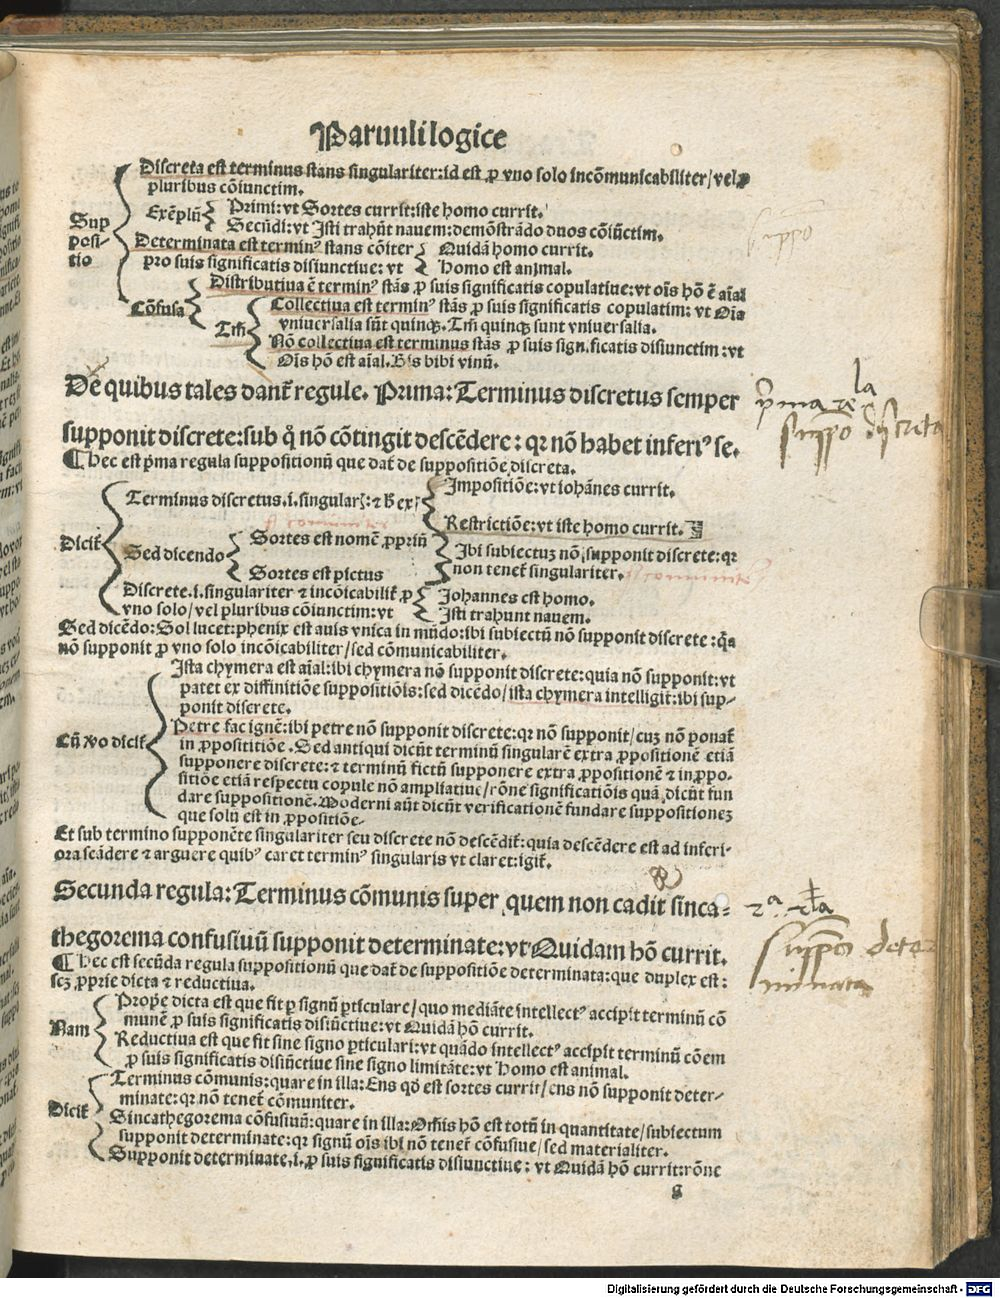 Paruuli logice
Discreta est terminus stans singulariter: id est ꝓ vno solo incõmunicabiliter/ vel ꝓ
pluribus cõiunctim.
Exẽplũ
Primi: vt Sortes currit: iste homo currit.
Secũdi: vt Isti trahũt nauem: demõstrãdo duos cõiũctim.
Sup
posi-
tio
Determinata est terminꝰ stans cõiter
pro suis significatis disiunctiue: vt
Quidã homo currit.
Homo est animal.
Cõfusa
Distributiua ẽ terminꝰ stãs ꝓ suis significatis copulatiue: vt oĩs hõ ẽ aĩal
Tm̃
Collectiua est terminꝰ stãs ꝓ suis significatis copulatim: vt Oĩa
vniuersalia sũt quinqꝫ. Tm̃ quinqꝫ sunt vniuersalia.
Nõ collectiua est terminus stãs ꝓ suis significatis disiunctim: vt
Oĩs hõ est aĩal. Bis bibi vinũ.
De quibus tales dant᷑ regule. Prima: Terminus discretus semper
supponit discrete: sub q̊ nõ cõtingit descẽdere: qꝛ nõ habet inferiꝰ se.
¶ Hec est p̃ma regula suppositionũ que dat᷑ de suppositiõe discreta.
p̃ma re la
suppo discreta
Dicit᷑
Terminus discretus .i. singularꝭ: ⁊ h̃ ex
Impositiõe: vt iohãnes currit.
Restrictiõe: vt iste homo currit.
Sed dicendo
Sortes est nomẽ ꝓpriũ
Sortes est pictus
Ibi subiectuꝫ nõ supponit discrete: qꝛ
non tenet᷑ singulariter.
Discrete .i. singulariter ⁊ incõicabilit᷑ ꝓ
vno solo/ vel pluribus cõiunctim: vt
Johannes est homo.
Isti trahunt nauem.
Sed dicẽdo: Sol lucet: phenix est auis vnica in mũdo: ibi subiectũ nõ supponit discrete: q̃a
nõ supponit ꝓ vno solo incõicabiliter/ sed cõmunicabiliter.
Cũ ꝟo dicit᷑
Ista chymera est aĩal: ibi chymera nõ supponit discrete: quia nõ supponit: vt
patet ex diffinitiõe suppositiõis: sed dicẽdo/ ista chymera intelligit᷑: ibi sup-
ponit discrete.
Petre fac ignẽ: ibi petre nõ supponit discrete: qꝛ nõ supponit/ cuꝫ nõ ponat᷑
in ꝓpositiõe. Sed antiqui dicũt terminũ singularẽ extra ꝓpositionẽ etiã
supponere discrete: ⁊ terminũ fictũ supponere extra ꝓpositionẽ ⁊ in ꝓpo-
sitiõe etiã respectu copule nõ ampliatiue/ rõne significatiõis quã dicũt fun
dare suppositionẽ. Moderni aũt dicũt verificationẽ fundare suppositioneꝫ
que solũ est in ꝓpositiõe.
Et sub termino supponẽte singulariter seu discrete nõ descẽdit᷑: quia descẽdere est ad inferi-
ora scãdere ⁊ arguere quibꝰ caret terminꝰ singularis vt claret: igit᷑.
Secunda regula: Terminus cõmunis super quem non cadit sinca-
thegorema confusiuũ supponit determinate: vt Quidam hõ currit.
¶ Hec est secũda regula suppositionũ que dat᷑ de suppositiõe determinata: que duplex est:
scꝫ ꝓprie dicta ⁊ reductiua.
2ª rła
suppõ deter
minata
Nam
Proprie dicta est que fit ꝑ signũ ꝑticulare/ quo mediãte intellectꝰ accipit terminũ cõ
munẽ ꝓ suis significatis disiũctiue: vt Quidã hõ currit.
Reductiua est que fit sine signo ꝑticulari: vt quãdo intellectꝰ accipit terminũ cõem
ꝓ suis significatis disiũctiue sine signo limitãte: vt Homo est animal.
Dicit᷑
Terminus cõmunis: quare in illa: Ens qd̓ est sortes currit/ ens nõ supponit deter-
minate: qꝛ nõ tenet᷑ cõmuniter.
Sincathegorema cõfusiuũ: quare in illa: Om̃is hõ est totũ in quantitate/ subiectum
supponit determinate: qꝛ signũ oĩs ibi nõ tenet᷑ cõfusiue/ sed materialiter.
Supponit determinate .i. ꝓ suis significatis disiunctiue: vt Quidã hõ currit: rõne
g
Digitalisierung gefördert durch die Deutsche Forschungsgemeinschaft - DFG